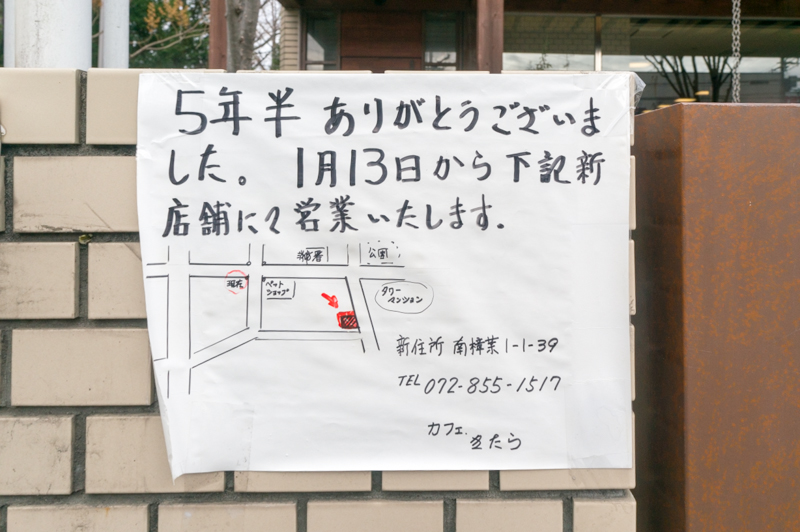 5年半 ありがとうございま
した。 1月13日から下記新
店舗にて営業いたします.
消防署
公園
現在
ペット
ショップ
タワー
マンション
新住所 南樟葉1-1-39
TEL 072-855-1517
カフェ.
きたら